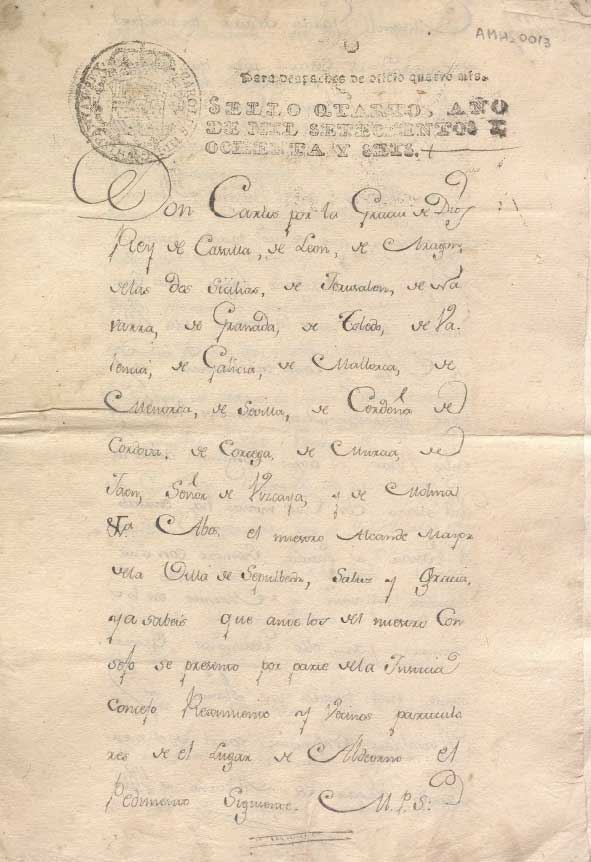 AMA_0013
Para despachos de oficio quatro mrs.
SELLO QUARTO, AÑO
DE MIL SETECIENTOS Y
OCHENTA Y SEIS.
CAROLUS III
Don Carlos por la Gracia de Dios
Rey de Castilla, de Leon, de Aragon,
delas dos Sicilias, de Jerusalen, de Na
varra, de Granada, de Toledo, de Va-
lencia, de Galicia, de Mallorca, de
Menorca, de Sevilla, de Cerdeña de
Cordova, de Corcega, de Murcia, de
Jaen, Señor de Vizcaya, y de Molina
&a. A bos, el nuestro Alcalde Mayor
dela Villa de Sepulbeda, Salud y Gracia,
ya sabeis que ante los del nuestro Con
sejo se presento por parte dela Justicia
Concejo Regimiento y Vecinos particula
res de el Lugar de Aldeorno el
Pedimento Siguiente. M. P. S.